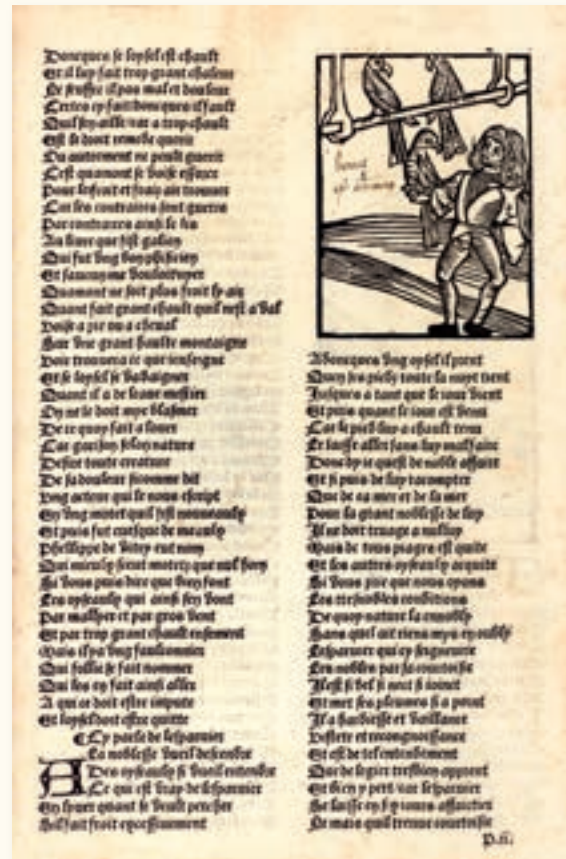 Doncques se loysel est chault
Et il luy fait trop grant chaleur
Ne seuffre il pas mal et douleur
Certes cy fait doncques il fault
Quil sen aille car a trop chault
Est se doit remede querir
Ou autrement ne peult guerir
Cest quamont se voise essorer
Pour le froit et frais air trouver
Car les contraires sont gueris
Par contraires ainsi le lis
Au livre que fist galien
Qui fut ung bon phisicien
Et scavez une
Quamont ne soit plus froit lair
Quant fait grant chault quil nest a val
Voise a pie ou a cheval
Sur une grant haulte montaigne
Voir trouvera ce que ienseigne
Et se loysel se va baigner
Quant il a de leaue mestier
On ne le doit mye blasmer
De ce quoy fait a louer
Car garison selon nature
Desire toute creature
De sa douleur sicomme dit
Ung acteur qui le nous escript
En ung motet quil fist nouveau
Et puis fut evesque de meaulx
Phelippe de vitry eut nom
Qui mieulx sceut motetz que nul hom
Si vous puis dire que bien font
Les oyseaulx qui ainsi sen vont
Par mallper et par gros vent
Et par trop grant chault ensement
Mais il ya ung faulconnier
Qui follie se fait nommer
Qui les en fait ainsi aller
A qui ce doit estre impute
Et loysel doit estre quitte
Cy parle de lesparvier
A La noblesse vueil descendre
Des oyseaulx si vueil entendre
Ce qui est vray de lesparvier
En yver quant se veult percher
Sil fait froit excessivement
Adoncques ung oysel il prent
Quen ses piedz toute la nuyt tient
Jusques a tant que le iour vient
Et puis quant le iour est venu
Car le pied luy a chault tenu
Le laisse aller sans luy mal faire
Donc dy ie quest de noble affaire
Et si puis de luy racompter
Que de ca mer et de la mer
Pour la grant noblesse de luy
Il ne doit truage a nulluy
Mais de tous peages est quite
Et les autres oyseaulx acquite
Si vous dire que nous avons
Les conditions
De quoy nature la ennobly
Sans quel ait riens mys en oubly
Lesparvier qui en seigneurie
Les nobles par sa courtoisie
Il est si bel si nect si ioinct
Et met ses plumes si a point
Il a hardiesse et vaillance
Destre et recongnoissance
Et est de tel entendement
Que de legier tresbien apprent
Et bien y pert car lesparvier
Se laisse en iours affaictier
Ne mais quil treuve courtoisie
p.ii.